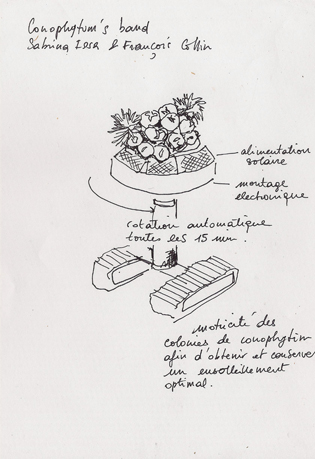 Conophytum's band
Sabrina Issa & François Collin
alimentation
solaire
montage
électronique
rotation automatique
toutes les 15 mn.
motricité des
colonies de conophytum
afin d'obtenir et conserver
un ensoleillement
optimal.